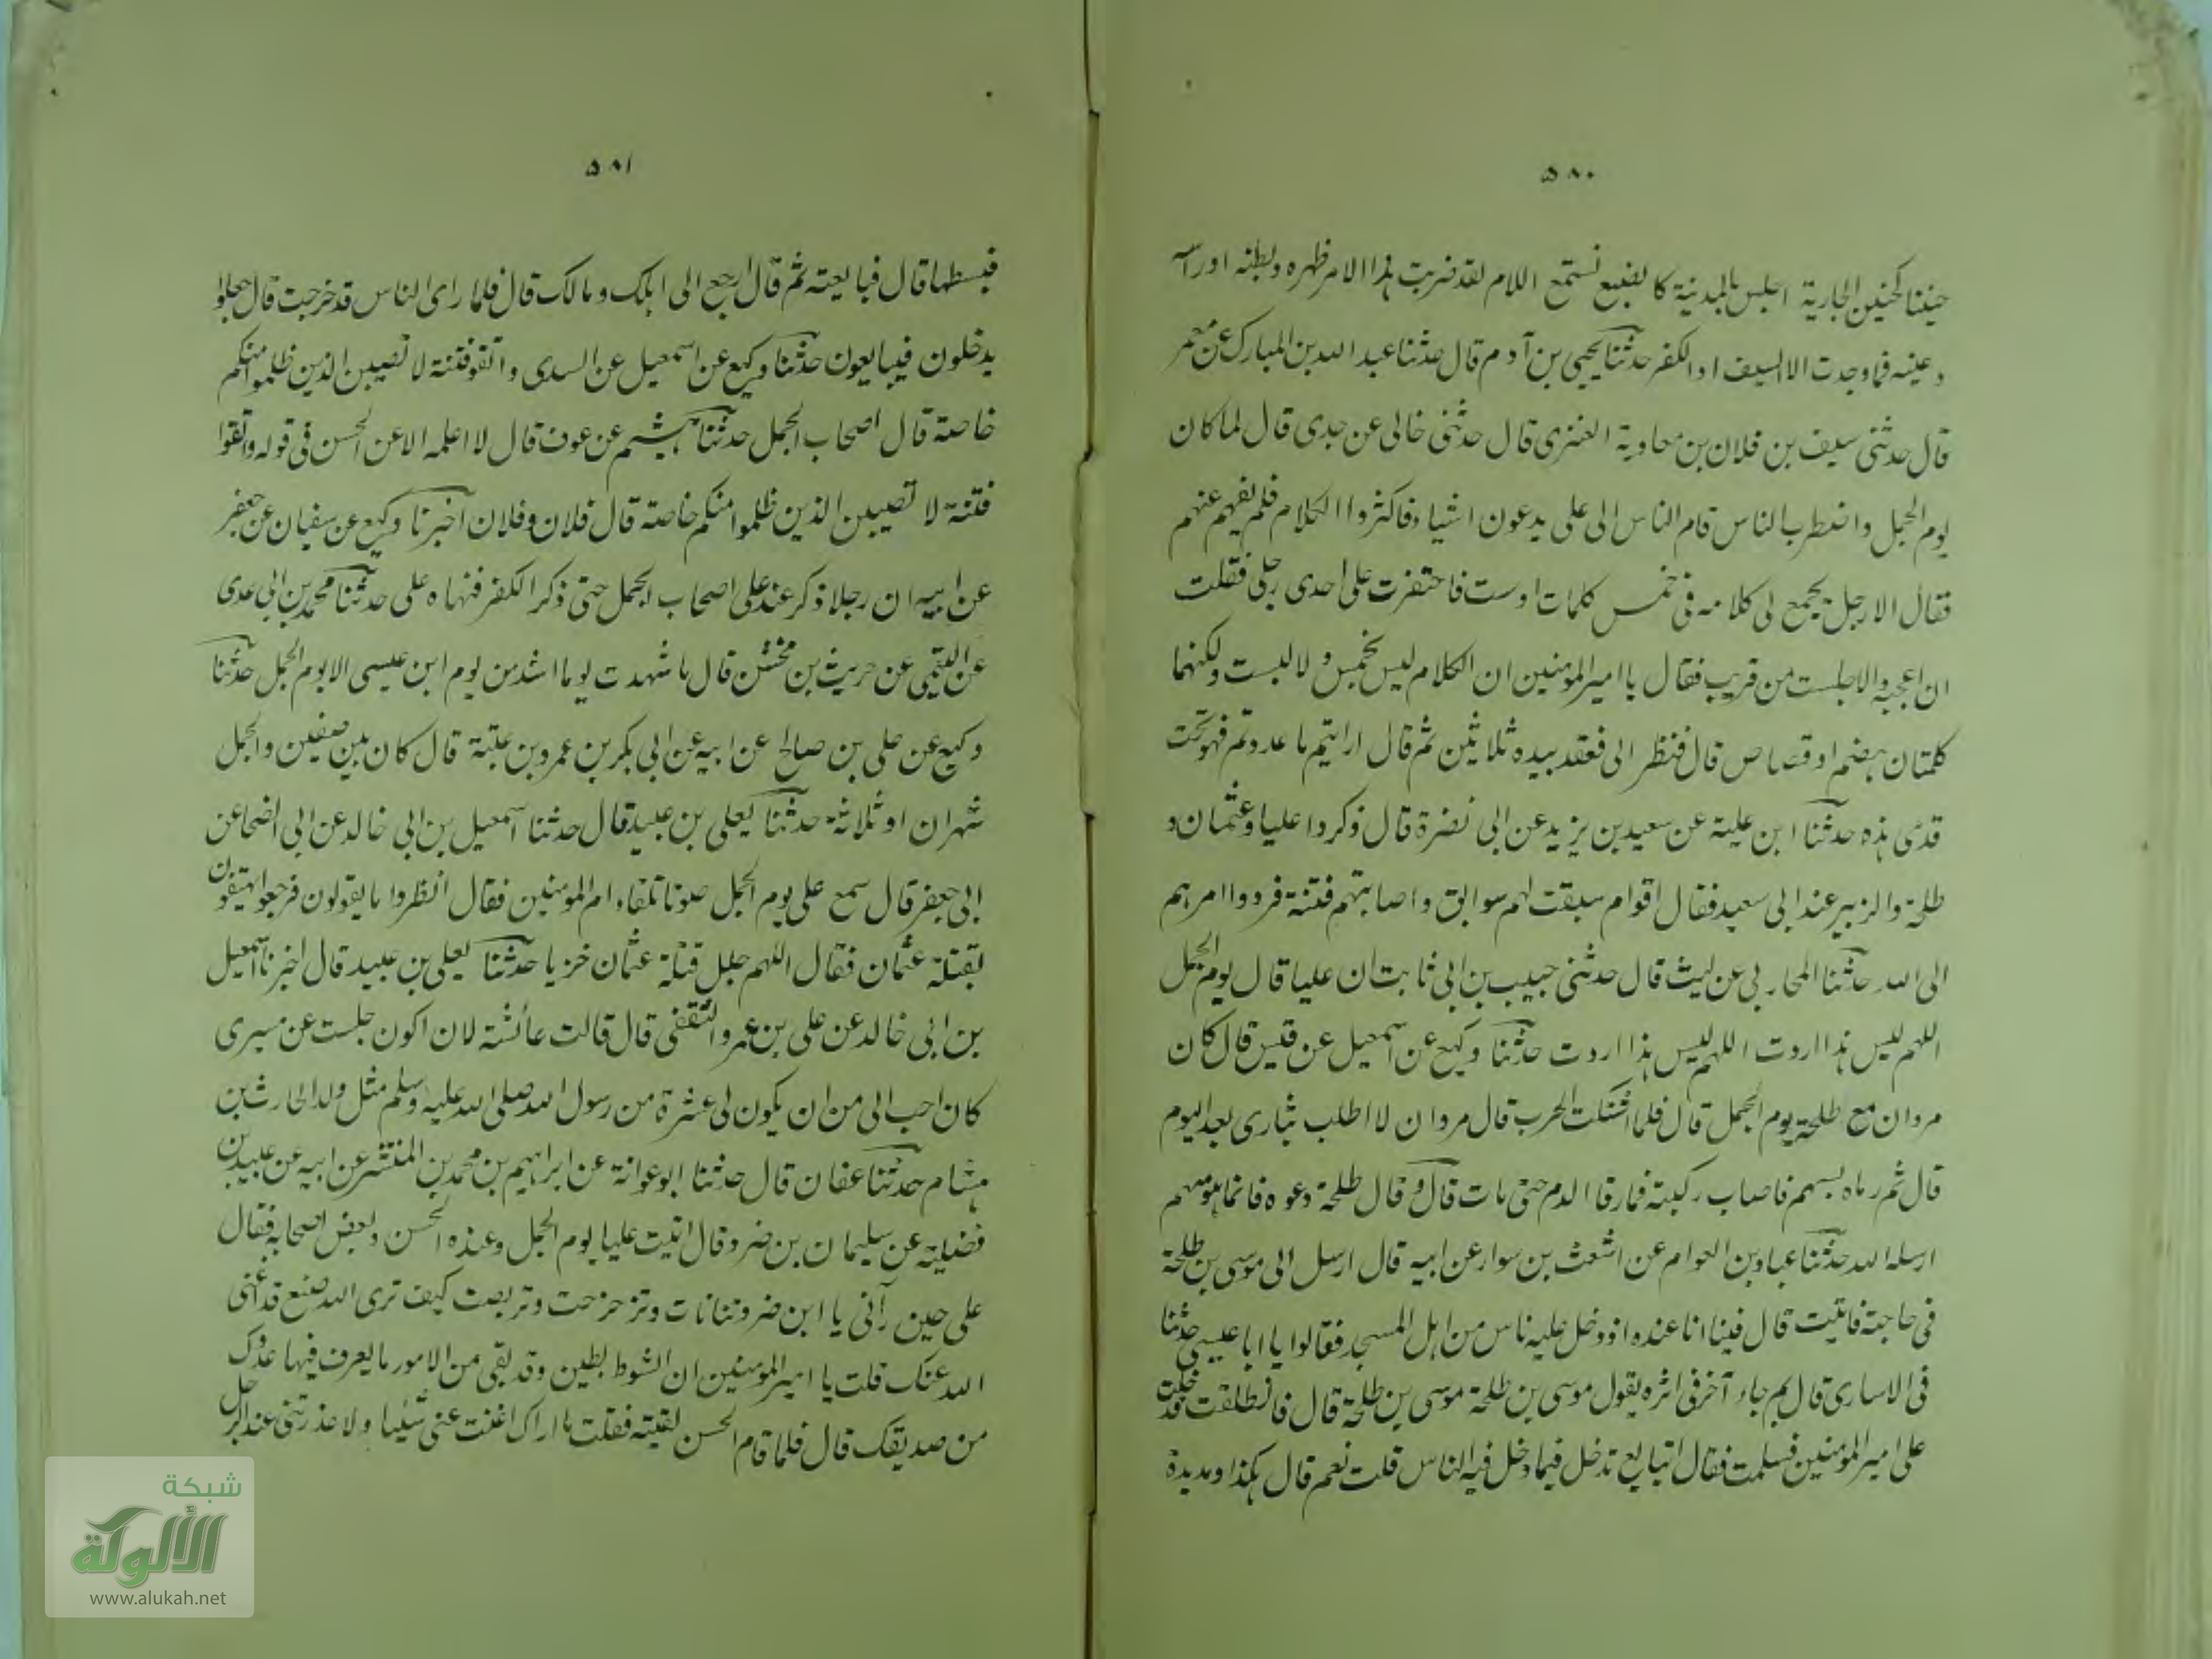 ٥٨٠
حنينا كحنين الجارية اجلس بالمدينة كالضبع تستمع اللدم لقد ضربت هذا الامر ظهره وبطنه او راسه
وعينيه فما وجدت الا السيف او الكفر حدثنا يحيى بن آدم قال حدثنا عبد الله بن المبارك عن معمر
قال حدثنى سيف بن فلان بن معاوية العنزى قال حدثنى خالى عن جدى قال لما كان
يوم الجمل واضطرب الناس قام الناس الى على يدعون اشياء فاكثروا الكلام فلم يفهم عنهم
فقال الا رجل يجمع لى كلامه فى خمس كلمات او ست فاحتفزت على احدى رجلى فقلت
ان اعجبه والا جلست من قريب فقال يا امير المومنين ان الكلام ليس بخمس ولا لبست ولكنهما
كلمتان هضم او قصاص قال فنظر الى فعقد بيده ثلاثين ثم قال ارايتم ما عددتم فهو تحت
قدمى هذه حدثنا ابن علية عن سعيد بن يزيد عن ابى نضرة قال ذكروا عليا وعثمان و
طلحة والزبير عند ابى سعيد فقال اقوام سبقت لهم سوابق واصابتهم فتنة فردوا امرهم
الى الله حدثنا المحاربى عن ليث قال حدثنى حبيب بن ابى ثابت ان عليا قال يوم الجمل
اللهم ليس هذا اردت اللهم ليس هذا اردت حدثنا وكيع عن اسمعيل عن قيس قال كان
مروان مع طلحة يوم الجمل قال فلما اشتبكت الحرب قال مروان لا اطلب بثارى بعد اليوم
قال ثم رماه بسهم فاصاب ركبته فما رقا الدم حتى مات قال وقال طلحة دعوه فانما هو سهم
ارسله الله حدثنا عباد بن العوام عن اشعث بن سوار عن ابيه قال ارسل الى موسى بن طلحة
فى حاجة فاتيت قال فبينا انا عنده اذ دخل عليه ناس من اهل المسجد فقالوا يا ابا عيسى حدثنا
فى الاسارى قال ثم جاء آخر فى اثره يقول موسى بن طلحة موسى بن طلحة قال فانطلقت فدخلت
على امير المومنين فسلمت فقال اتبايع تدخل فيما دخل فيه الناس قلت نعم قال هكذا ومد يده
٥٨١
فبسطها قال فبايعته ثم قال ارجع الى اهلك ومالك قال فلما راى الناس قد خرجت قال جعلوا
يدخلون فيبايعون حدثنا وكيع عن اسمعيل عن السدى واتقو فتنة لا تصيبن الذين ظلموا منكم
خاصة قال اصحاب الجمل حدثنا هشيم عن عوف قال لا اعلمه الا عن الحسن فى قوله واتقوا
فتنة لا تصيبن الذين ظلموا منكم خاصة قال فلان وفلان اخبرنا وكيع عن سفيان عن جعفر
عن ابيه ان رجلا ذكر عند على اصحاب الجمل حتى ذكر الكفر فنهاه على حدثنا محمد بن ابى عدى
عن التيمى عن حريث بن مخشن قال ما شهدت يوما اشد من يوم ابن عيسى الا يوم الجمل حدثنا
وكيع عن على بن صالح عن ابيه عن ابى بكر بن عمرو بن عتبة قال كان بين صفين والجمل
شهران او ثلاثة حدثنا يعلى بن عبيد قال حدثنا اسمعيل بن ابى خالد عن ابى الضحا عن
ابى جعفر قال سمع على يوم الجمل صوتا تلقاء ام المومنين فقال انظروا ما يقولون فرجعوا يهتفون
بقتلة عثمان فقال اللهم جلل قتلة عثمان خزيا حدثنا يعلى بن عبيد قال اخبرنا اسمعيل
بن ابى خالد عن على بن عمرو الثقفى قال قالت عائشة لان اكون جلست عن مسيرى
كان احب الى من ان يكون لى عشرة من رسول الله صلى الله عليه وسلم مثل ولد الحارث بن
هشام حدثنا عفان قال حدثنا ابو عوانة عن ابراهيم بن محمد بن المنتشر عن ابيه عن عبيد بن
فضيلة عن سليمان بن ضرو قال اتيت عليا يوم الجمل وعنده الحسن وبعض اصحابه فقال
على حين رآنى يا ابن ضرو تنانات وتزحزحت وتربصت كيف ترى الله صنع قد اغنى
الله عنك قلت يا امير المومنين ان الشوط بطين وقد بقى من الامور ما يعرف فيها عدوك
من صديقك قال فلما قام الحسن لقيته فقلت ما اراك اغنت عنى شيئا ولا عذرتنى عند الرجل
شبكة
الألوكة
www.alukah.net